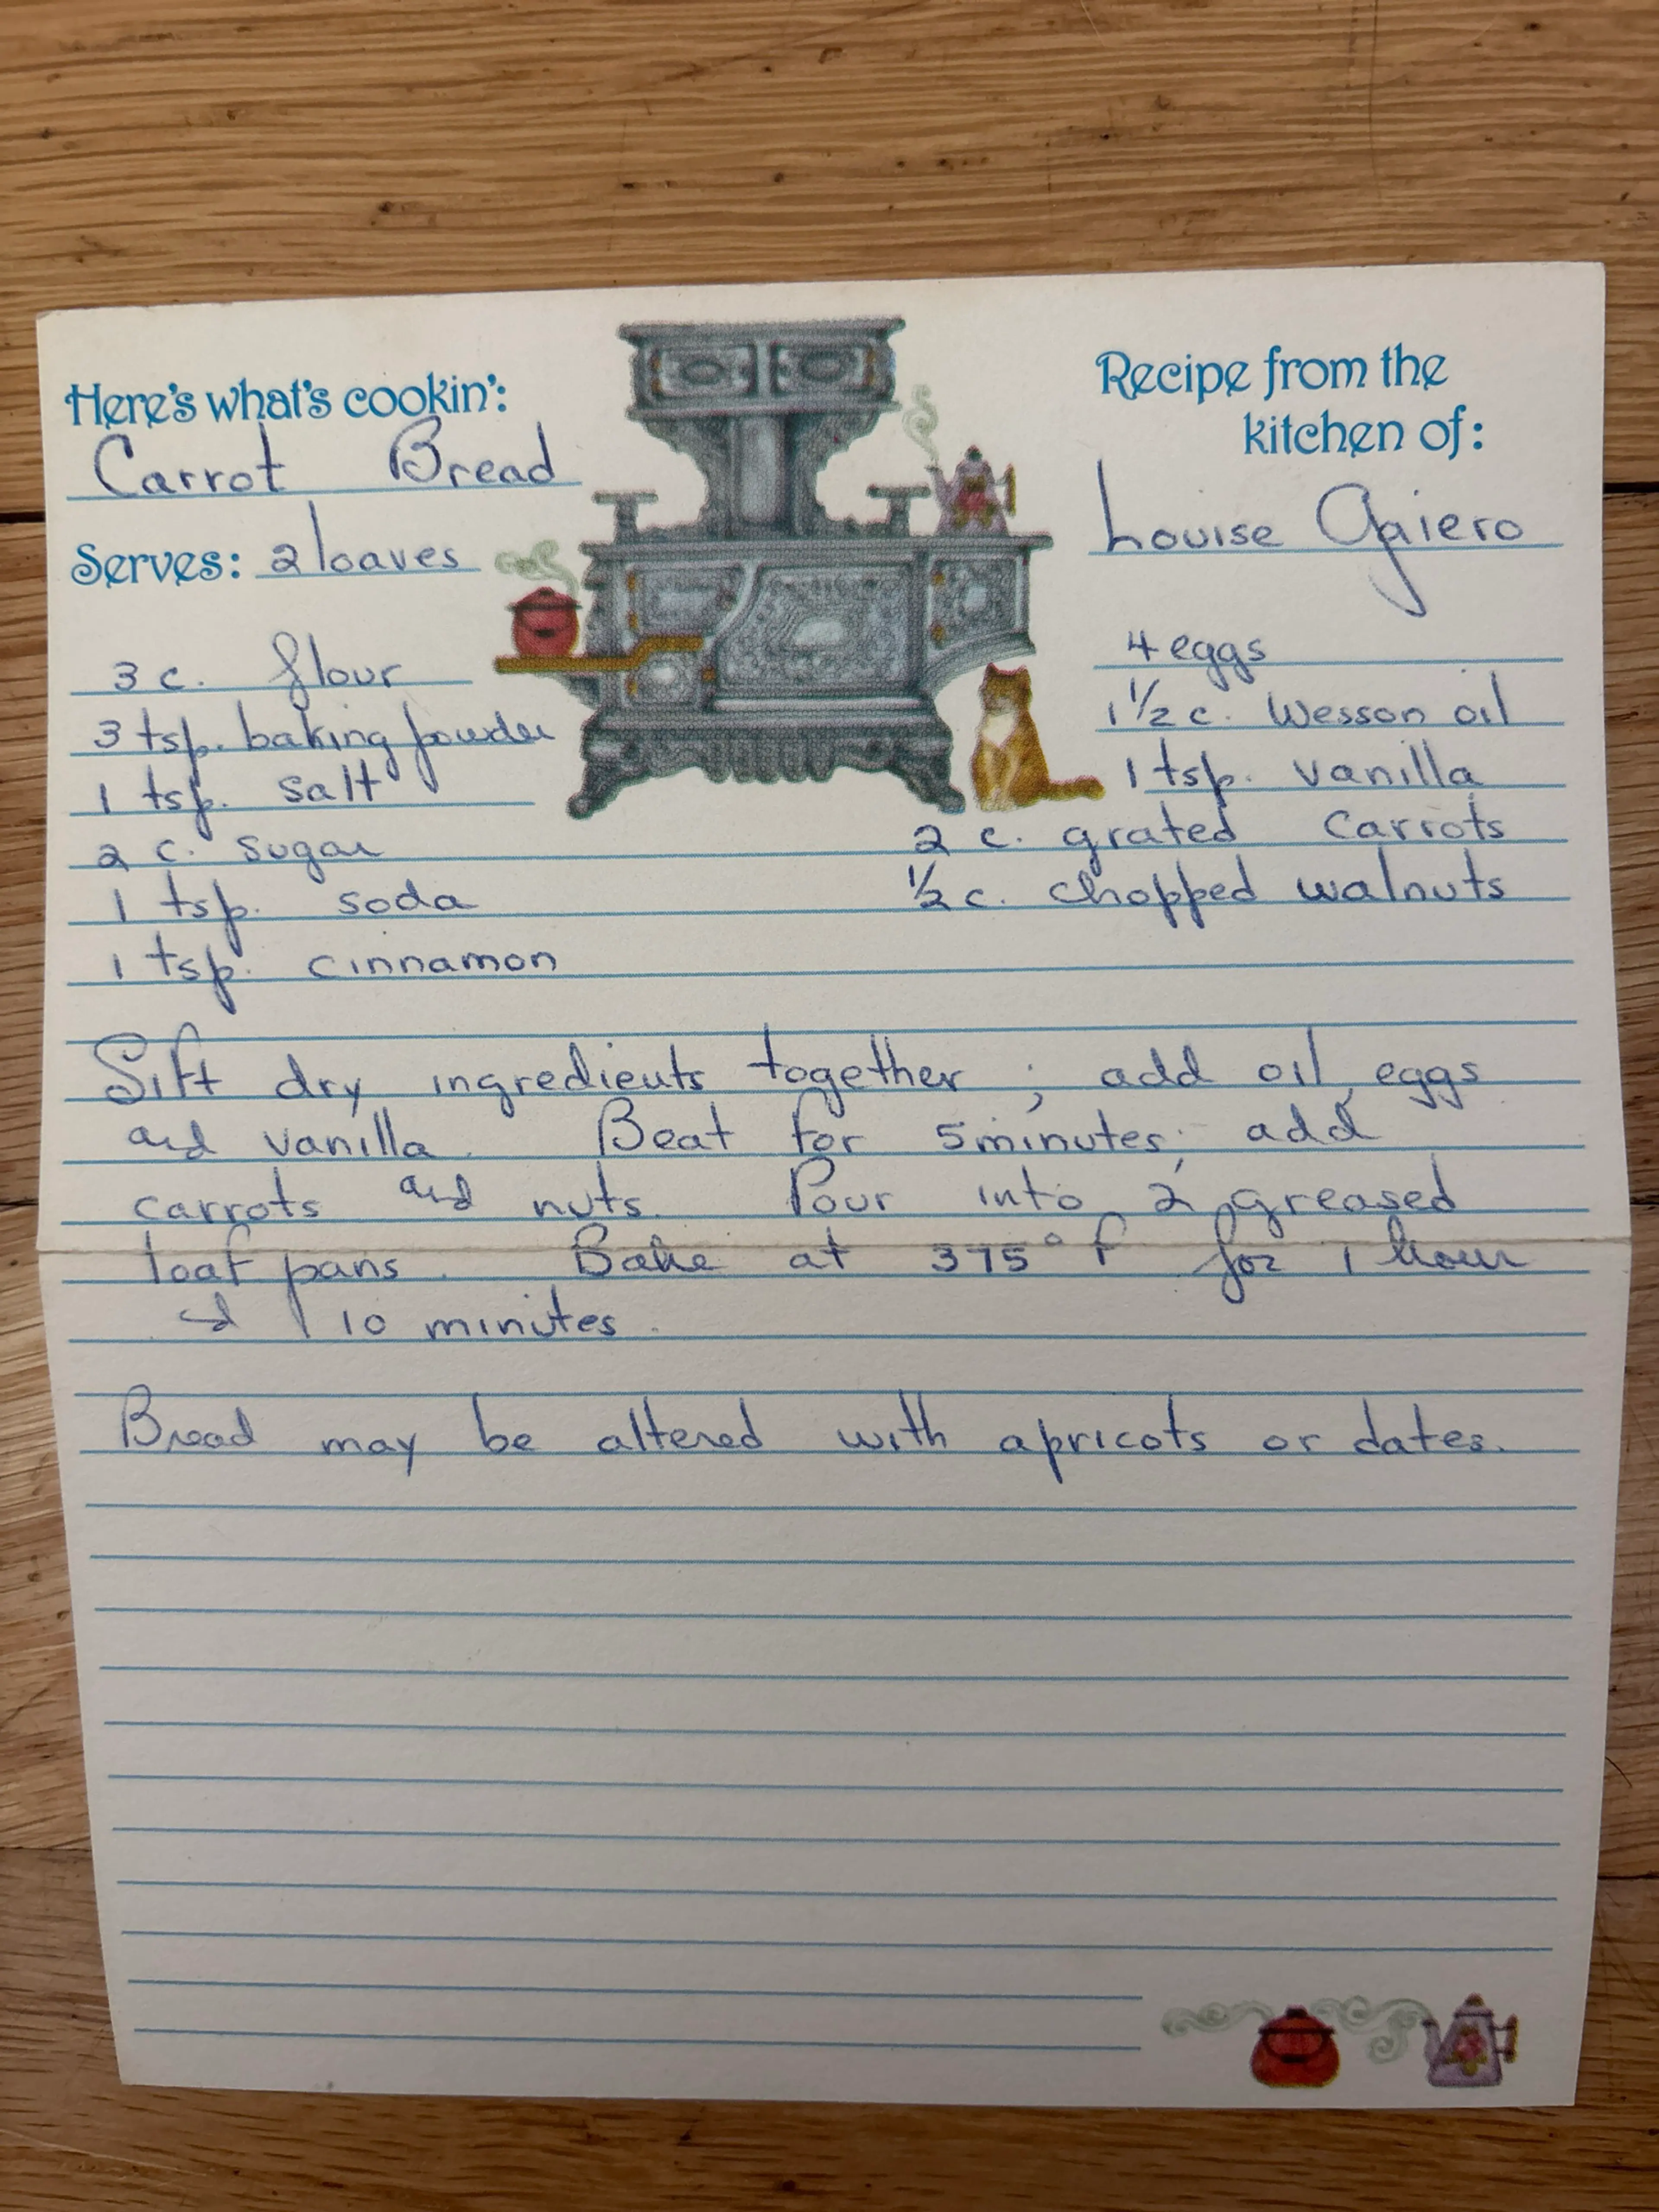 Here's what's cookin':
Carrot Bread
Serves: 2 loaves
Recipe from the
kitchen of:
Louise Gaiero
3 c. flour
3 tsp. baking powder
1 tsp. salt
2 c. sugar
1 tsp. soda
1 tsp. cinnamon
4 eggs
1 1/2 c. Wesson oil
1 tsp. vanilla
2 c. grated carrots
1/2 c. chopped walnuts
Sift dry ingredients together; add oil, eggs
and vanilla. Beat for 5 minutes; add
carrots and nuts. Pour into 2 greased
loaf pans. Bake at 375° F for 1 hour
10 minutes.
Bread may be altered with apricots or dates.